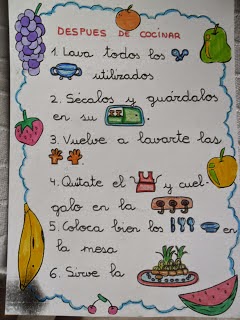 DESPUES DE COCINAR
1. Lava todos los
utilizados
2. Sécalos y guárdalos
en su
3. Vuelve a lavarte las
4. Quitate el y cuel-
galo en la
5. Coloca bien los en
la mesa
6. Sirve la